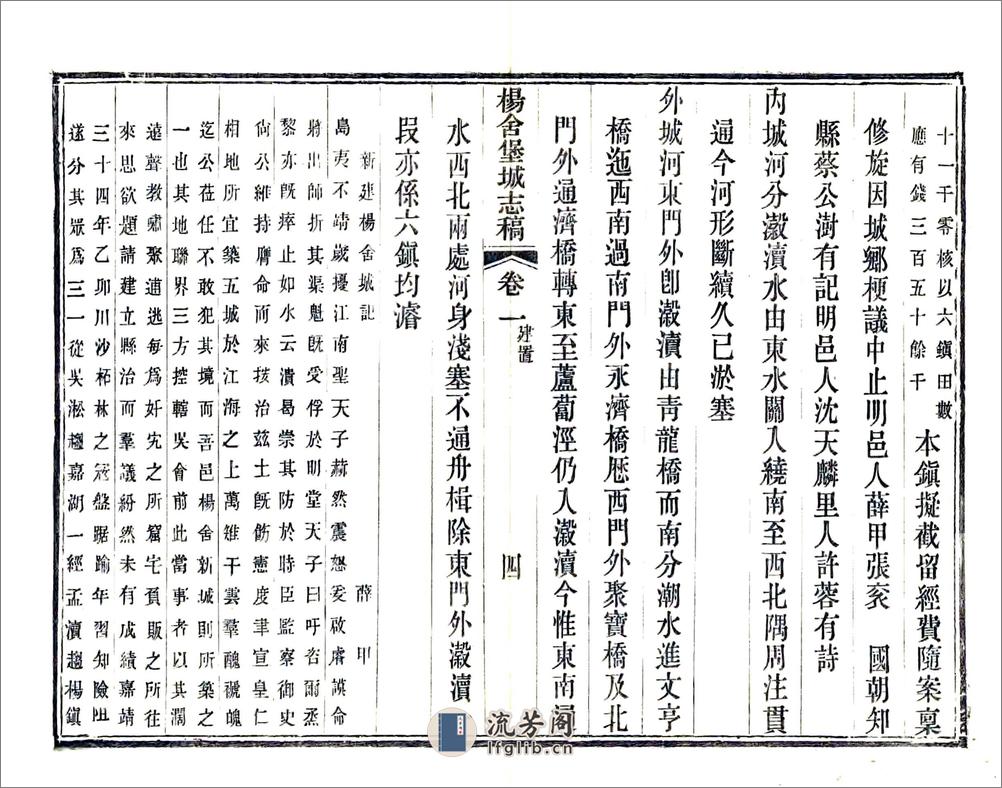 十一千零核以六鎮田數
應有錢三百五十餘千
本鎮擬截留經費隨案稟
修旋因城鄉梗議中止明邑人薛甲張袞 國朝知
縣蔡公澍有記明邑人沈天麟里人許蓉有詩
內城河分瀫瀆水由東水關入繞南至西北隅周注貫
通今河形斷續久已淤塞
外城河東門外卽瀫瀆由靑龍橋而南分潮水進文亨
橋迤西南過南門外永濟橋歷西門外聚寶橋及北
門外通濟橋轉東至蘆葡涇仍入瀫瀆今惟東南通
楊舍堡城志稿 卷一 建置 四
水西北兩處河身淺塞不通舟楫除東門外瀫瀆
段亦係六鎮均濬
新建楊舍城記 薛甲
島夷不靖歲擾江南聖天子赫然震怒爰啟睿謨命
將出師折其渠魁旣受俘於明堂天子曰吁咨爾烝
黎亦旣瘁止如水云潰曷崇其防於時臣監察御史
尙公維持膺命而來抜治茲土旣飭憲度聿宣皇仁
相地所宜築五城於江海之上萬雉干雲羣醜褫魄
迄公莅任不敢犯其境而吾邑楊舍新城則所築之
一也其地聯界三方控轄吳會前此當事者以其濶
遠聲教嘯聚逋逃每爲奸宄之所窟宅負販之所往
來思欲題請建立縣治而羣議紛然未有成績嘉靖
三十四年乙卯川沙柘林之寇盤踞踰年習知險阻
遂分其眾爲三一從吳淞趨嘉湖一經孟瀆趨楊鎮
流芳阁
lfglib.com